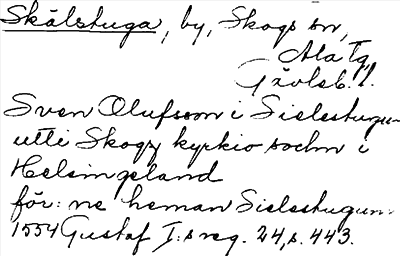 Skålstuga, by, Skogs sn,
Ala Tg,
Gävleb. l.
Sven Olufsson i Sielestugun
utti Skogz kyrkio sochn i
Helsingeland
för: ne heman Sielestugun.
1554 Gustaf I:s reg. 24, s. 443.